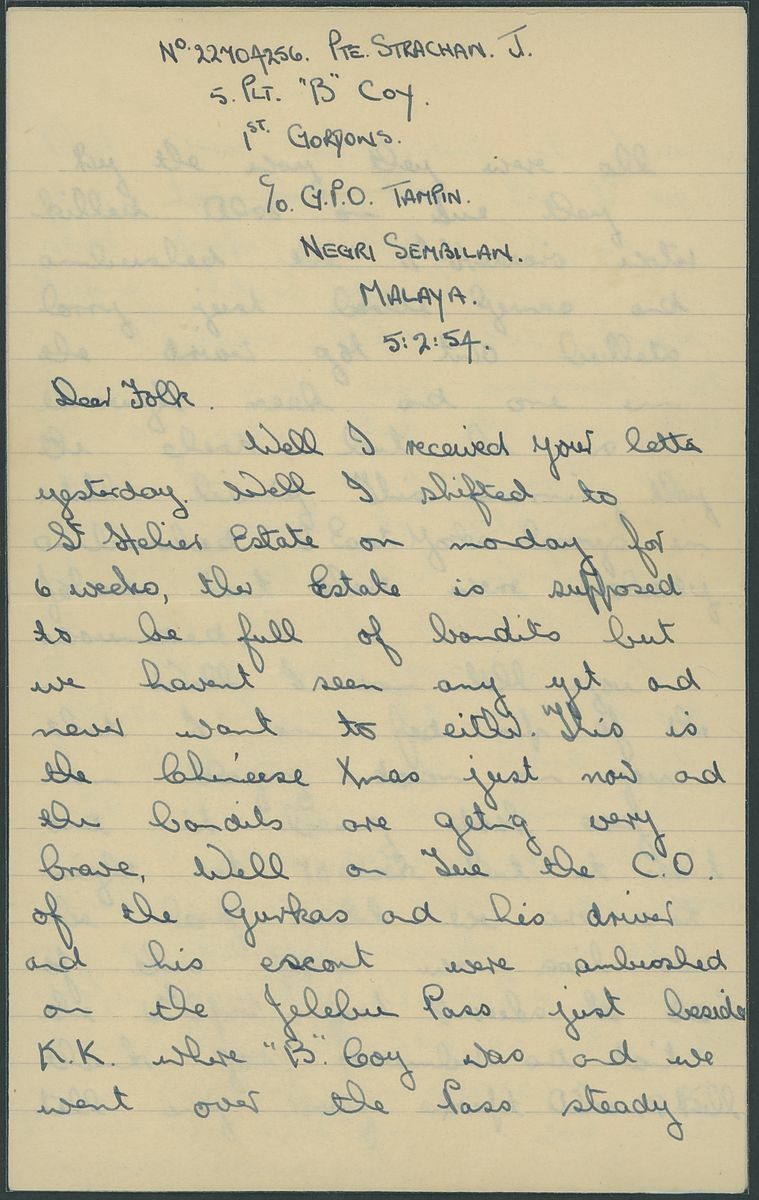 No. 22704256. PTE. STRACHAN. J.
5. PLT. "B" COY.
1ST. GORDONS.
c/o. G.P.O. TAMPIN.
NEGRI SEMBILAN.
MALAYA.
5:2:54.
Dear Folk.
Well I received your letter
yesterday. Well I shifted to
St Helier Estate on monday for
6 weeks, the Estate is supposed
to be full of bandits but
we havent seen any yet and
never want to either. This is
the Chineese Xmas just now and
the bandits are geting very
brave, Well on Tue the C.O.
of the Gurkas and his driver
and his escort were ambushed
on the Jelebu Pass just beside
K.K. where "B". Coy was and we
went over the Pass steady